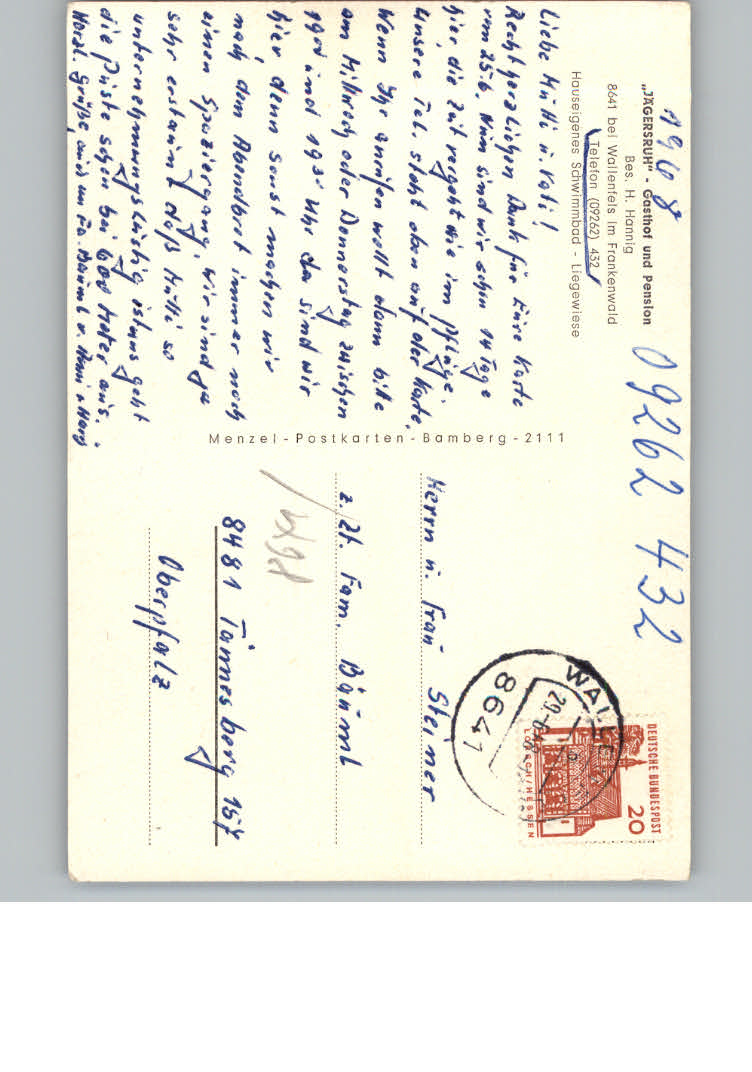 1968
„JÄGERSRUH" - Gasthof und Pension
Bes. H. Hannig
8641 bei Wallenfels im Frankenwald
Telefon (09262) 432
Hauseigenes Schwimmbad - Liegewiese
09262 432
Liebe Mutti u. Vati!
Recht herzlichen Dank für Eure Karte
vom 25.6. Nun sind wir schon 14 Tage
hier, die Zeit vergeht wie im Pfluge.
Unsere Tel. steht oben auf der Karte.
Wenn Ihr anrufen wollt dann bitte
am Mittwoch oder Donnerstag zwischen
19°° und 19³° Uhr da sind wir
hier denn sonst machen wir
nach dem Abendbrot immer noch
einen Spaziergang. Wir sind ja
sehr erstaunt daß Mutti so
unternehmungslustig ist uns geht
die Puste schon bei 600 Meter aus.
Herzl. Grüße, auch an Fa. Bäuml v. Hans u Harry
Menzel-Postkarten-Bamberg-2111
Herrn u. Frau Steiner
z. Zt. Fam. Bäuml
8481 Tännesberg 157
Oberpfalz
DEUTSCHE BUNDESPOST
20
LORSCH/HESSEN
8641
29.-6.68